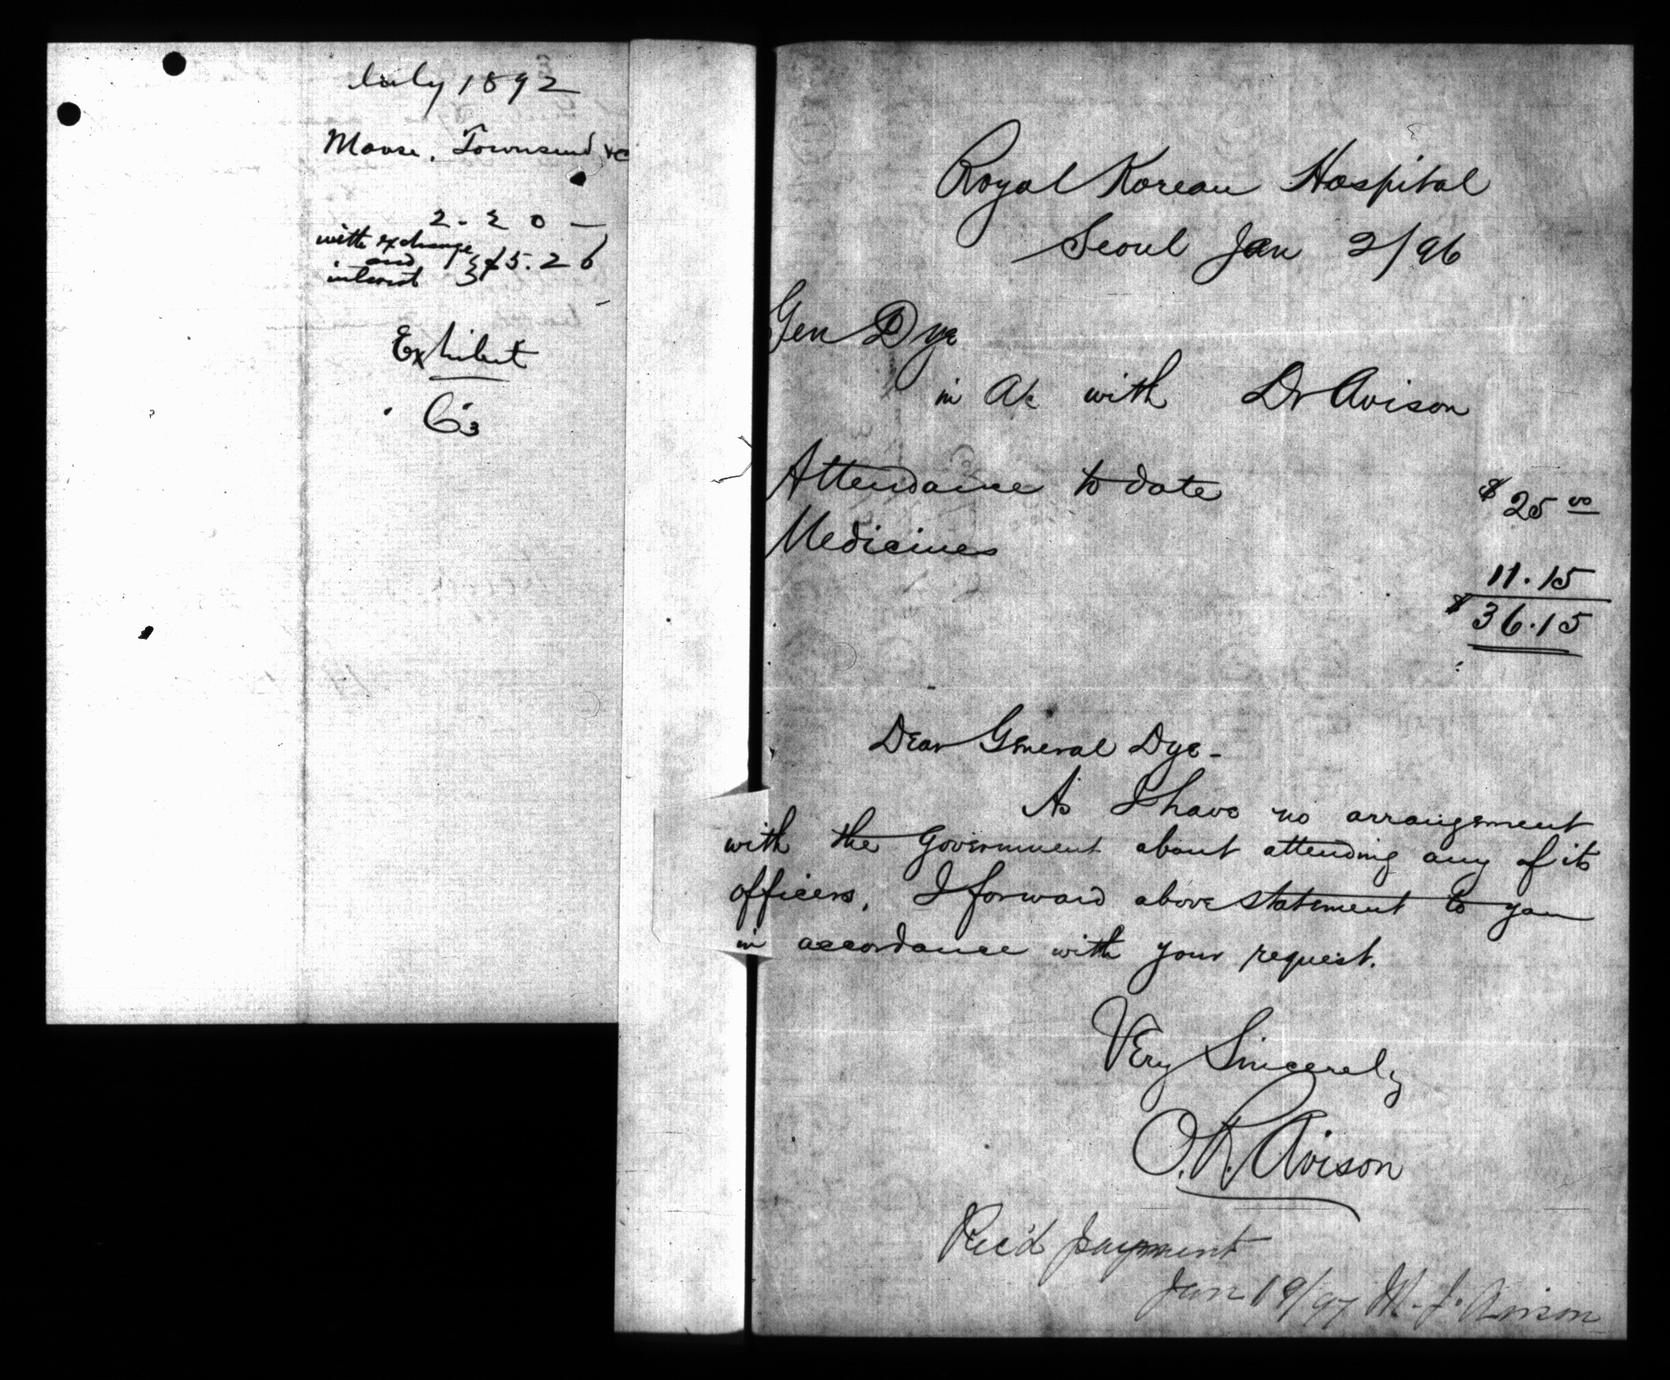 July 1892
Morse, Townsend &c
2. 20 —
with exchange
and $5.26
interest
Exhibit
C3
Royal Korean Hospital
Seoul Jan 2/96
Gen Dye
in A/c with Dr Avison
Attendance to date $25 00
Medicines
11.15
$36.15
Dear General Dye -
As I have no arrangement
with the Government about attending any of its
officers, I forward above statement to you
in accordance with your request.
Very Sincerely
O. R. Avison
Rec'd payment
Jan 19/97 M. J. Avison